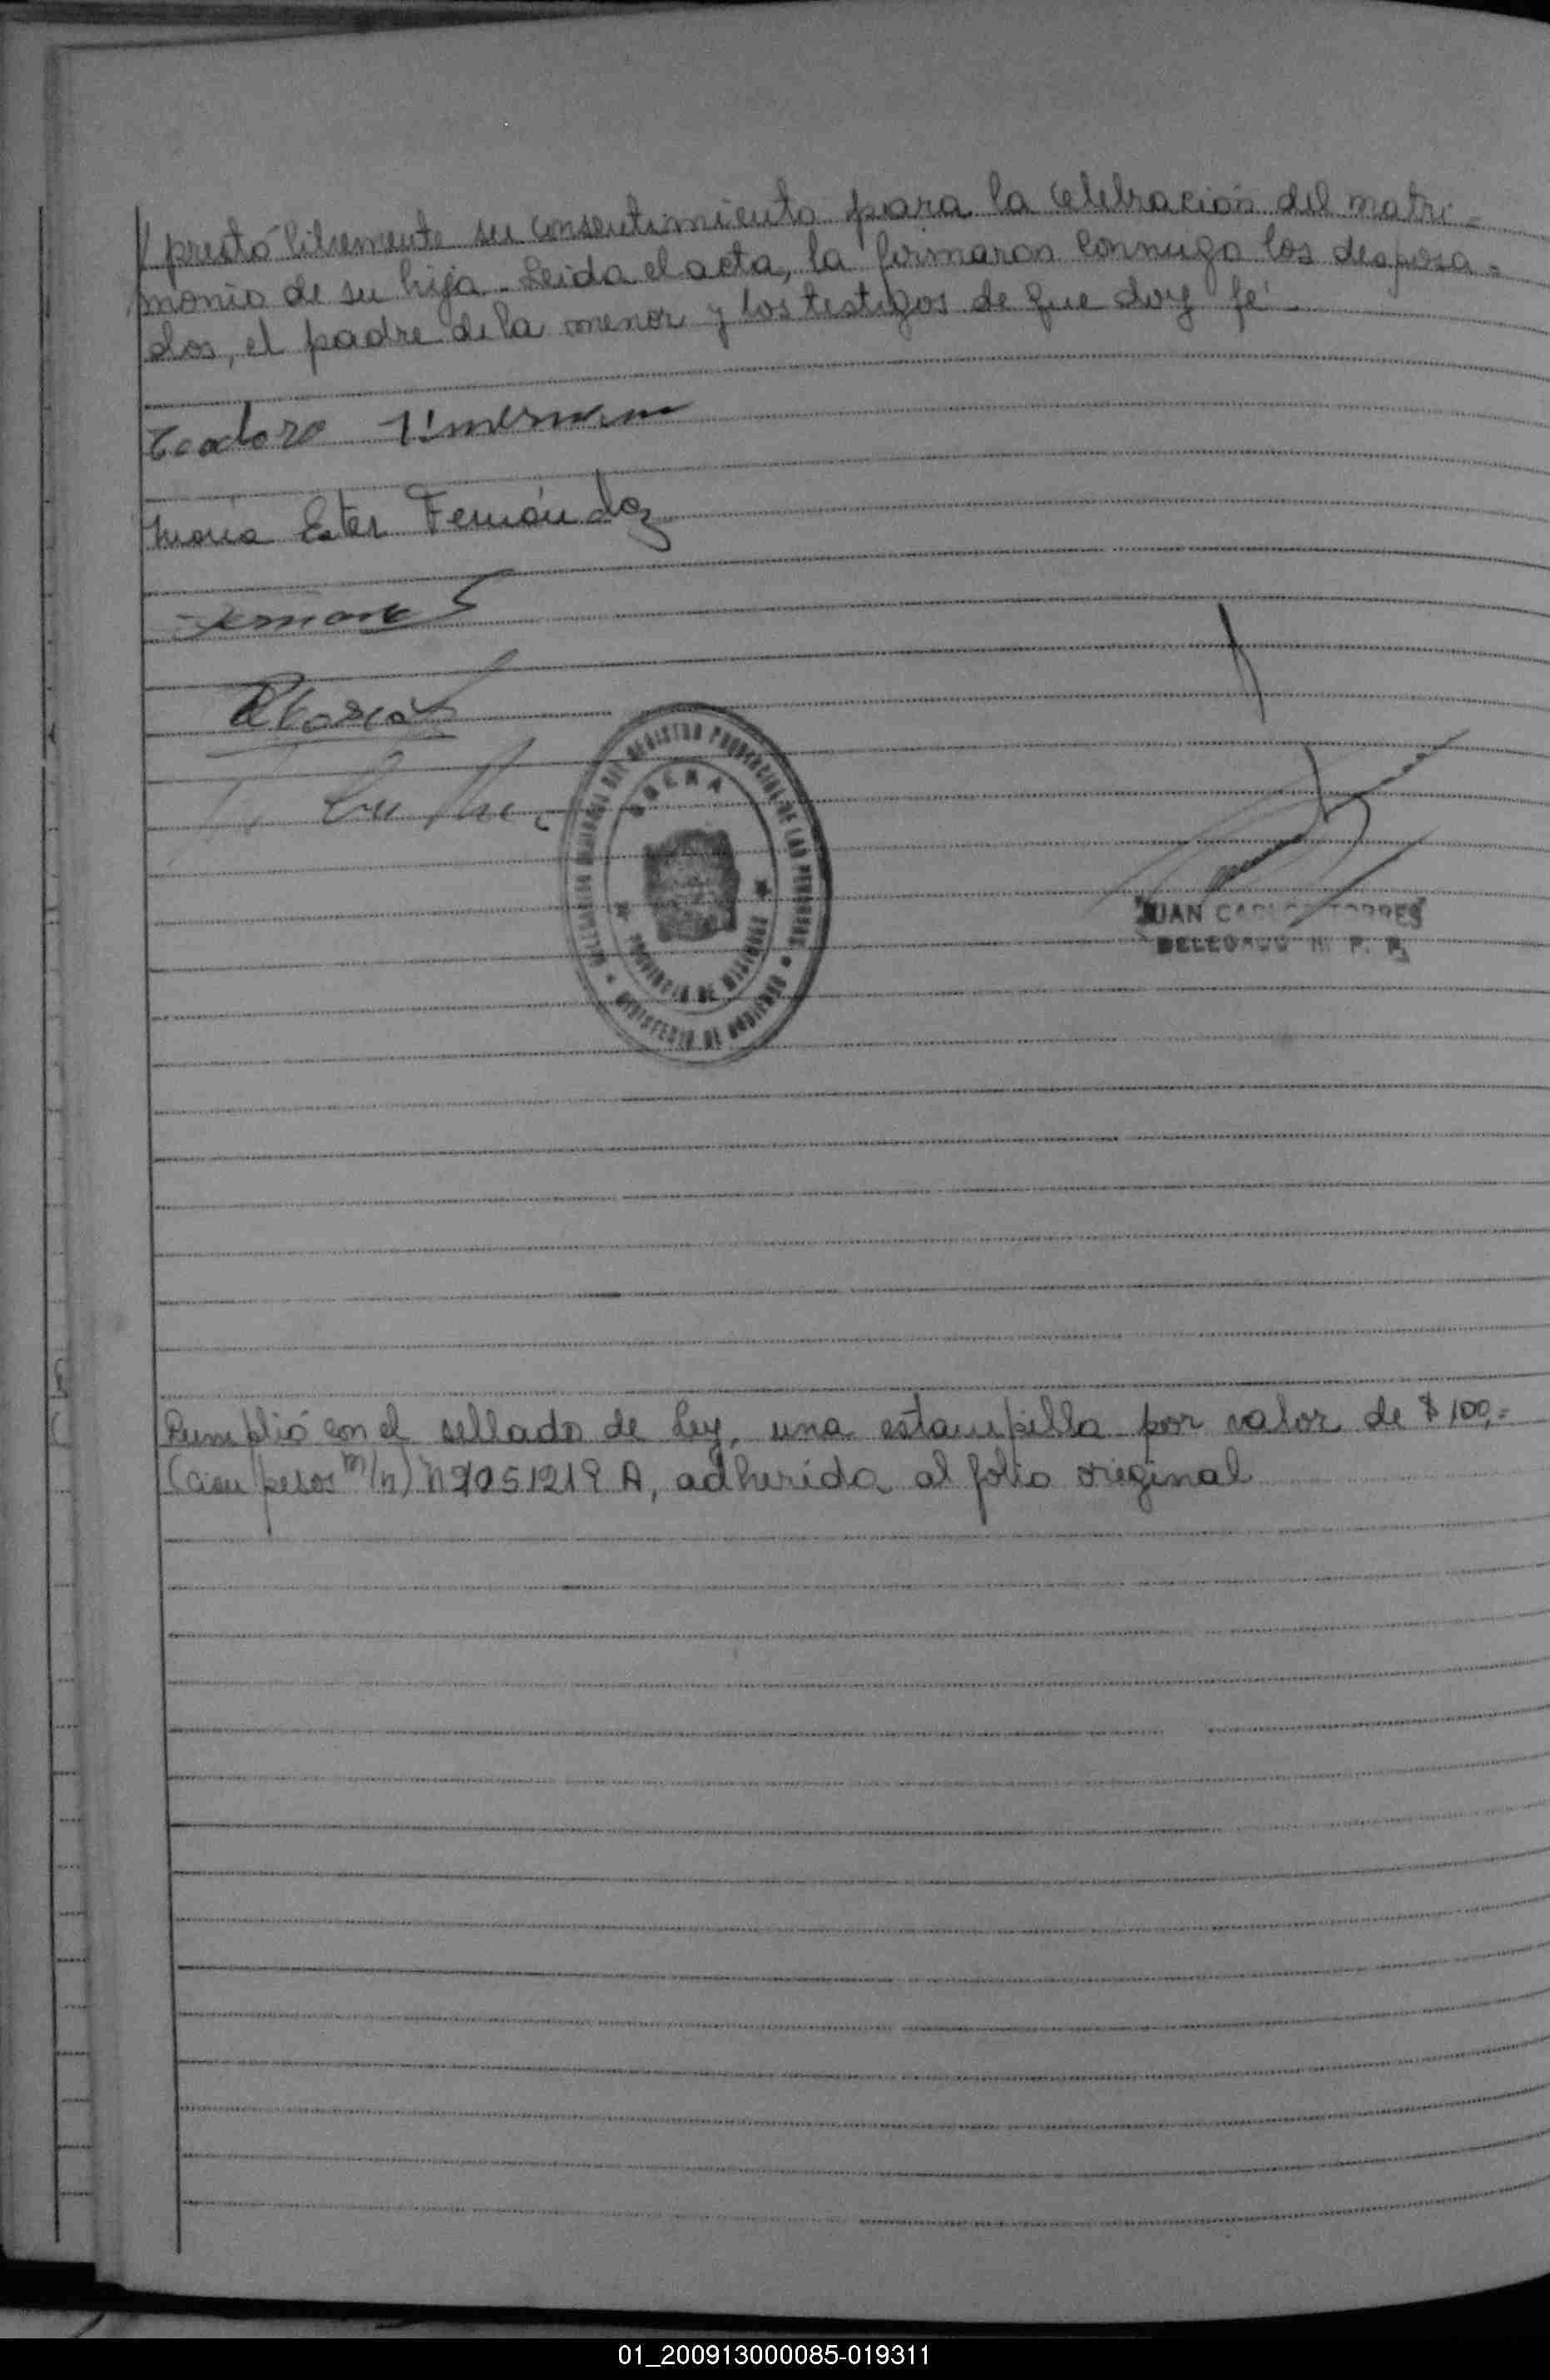 // prestó libremente su consentimiento para la celebración del matri=
monio de su hija. Leida el acta, la firmaron conmigo los desposa=
dos, el padre de la menor y los testigos de que doy fé.
Teodoro
María Ester Fernández
REGISTRO PROVINCIAL DE LAS PERSONAS
PROVINCIA DE
MINISTERIO DE GOBIERNO
JUAN CARLOS TORRES
DELEGADO R. P. P.
Cumplió con el sellado de Ley, una estampilla por valor de $ 100,=
(cien pesos m/n) Nº 051219 A, adherida al folio original
01_200913000085-019311